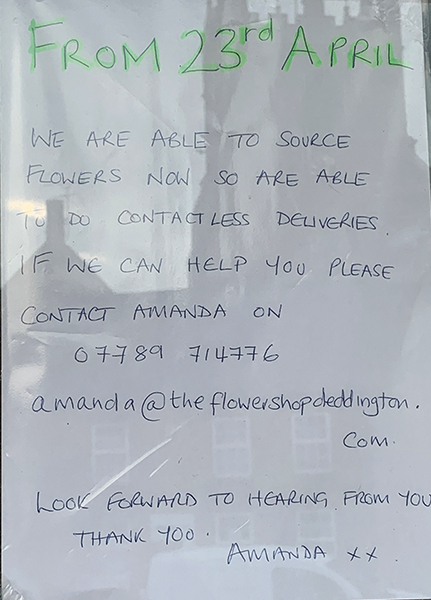 FROM 23rd APRIL
WE ARE ABLE TO SOURCE
FLOWERS NOW SO ARE ABLE
TO DO CONTACTLESS DELIVERIES.
IF WE CAN HELP YOU PLEASE
CONTACT AMANDA ON
07789 714776
amanda@theflowershopdeddington.
Com.
LOOK FORWARD TO HEARING FROM YOU
THANK YOU.
AMANDA xx.